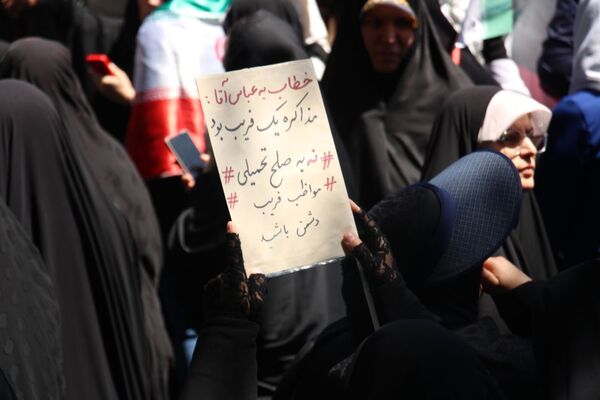 خطاب به عباس آقا :
مذاکره یک فریب بود
# نه به صلح تحمیلی #
# مواظب فریب #
دشمن باشید